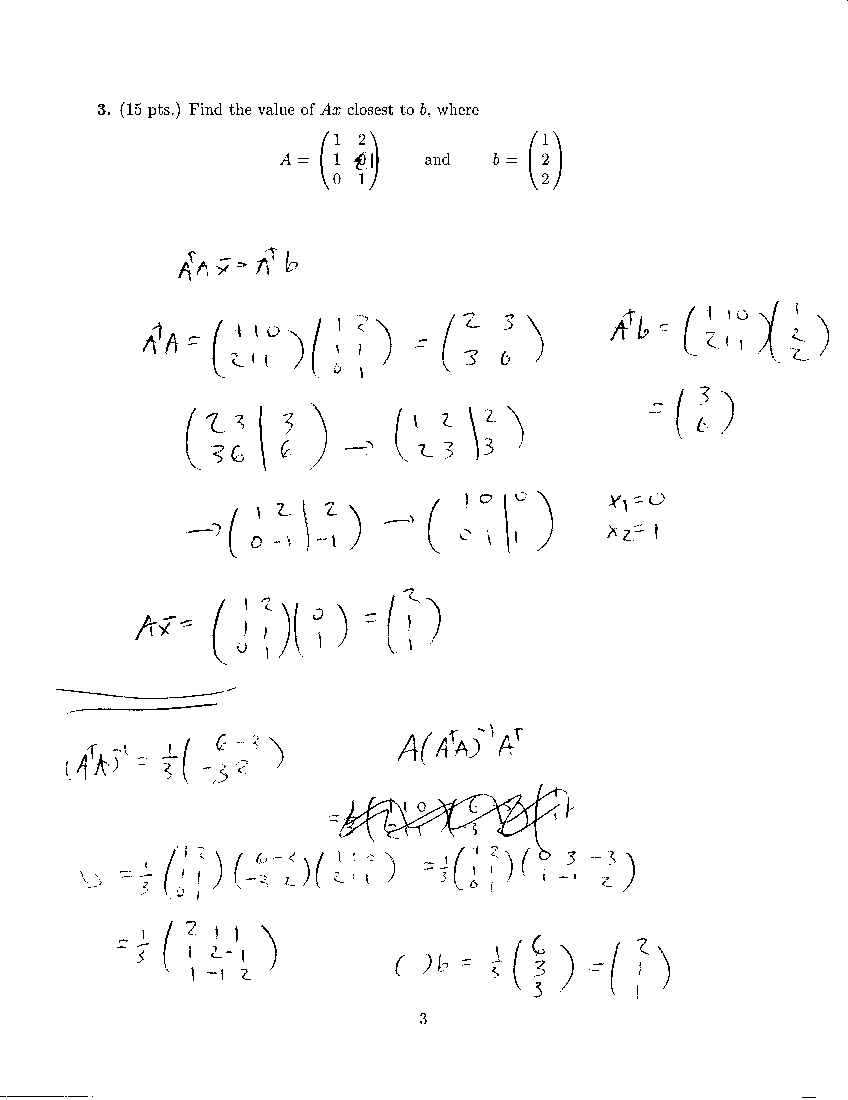 3. (15 pts.) Find the value of Ax closest to b, where
A = ( 1 2 ; 1 1 ; 0 1 ) and b = ( 1 ; 2 ; 2 )
AᵀA x̄ = Aᵀb
AᵀA = ( 1 1 0 ; 2 1 1 )( 1 2 ; 1 1 ; 0 1 ) = ( 2 3 ; 3 6 )
Aᵀb = ( 1 1 0 ; 2 1 1 )( 1 ; 2 ; 2 )
= ( 3 ; 6 )
( 2 3 | 3 ; 3 6 | 6 ) → ( 1 2 | 2 ; 2 3 | 3 )
→ ( 1 2 | 2 ; 0 -1 | -1 ) → ( 1 0 | 0 ; 0 1 | 1 )
x₁ = 0
x₂ = 1
Ax̄ = ( 1 2 ; 1 1 ; 0 1 )( 0 ; 1 ) = ( 2 ; 1 ; 1 )
(AᵀA)⁻¹ = 1/3 ( 6 -3 ; -3 2 )
A(AᵀA)⁻¹Aᵀ
= 1/3 ( 1 2 ; 1 1 ; 0 1 )( 6 -3 ; -3 2 )( 1 1 0 ; 2 1 1 ) = 1/3 ( 1 2 ; 1 1 ; 0 1 )( 0 3 -3 ; 1 -1 2 )
= 1/3 ( 2 1 1 ; 1 2 -1 ; 1 -1 2 )
( )b = 1/3 ( 6 ; 3 ; 3 ) = ( 2 ; 1 ; 1 )
3